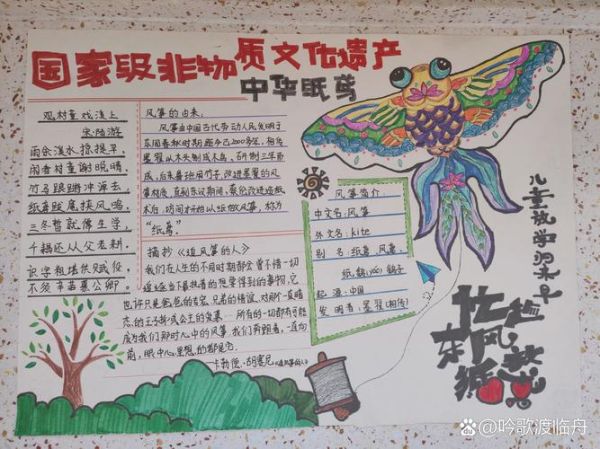 国家级非物质文化遗产
中华纸鸢
观村童戏溪上
宋·陆游
雨余溪水掠堤平,
闲看村童谢晚晴,
竹马踉蹡冲淖去,
纸鸢跋扈挟风鸣,
三冬暂就儒生学,
千耦还从父老耕,
识字粗堪供赋役,
不须辛苦慕公卿。
风筝的由来:
风筝由中国古代劳动人民发明于
东周春秋时期,距今已2000多年,相传
墨翟以木头制成木鸟,研制三年而
成,后来鲁班用竹子,改进墨翟的风
筝材质,直到东汉期间,蔡伦改进造纸
术后,坊间才开始以纸做风筝,称为
“纸鸢”
摘抄《追风筝的人》
我们在人生的不同时期都会曾不惜一切
也许只是爸爸的夸奖、兄弟的情谊、对那一直暗
前,眼中心里想的都是它。
卡勒德·胡赛尼《追风筝的人》
风筝简介:
中文名:风筝
外文名:kite
别名:纸鸢、风鸢、
纸鹞(yào)鹞子
起源:中国
发明者:墨翟(相传)
儿童放学归来早
忙趁
东风放
纸鸢
@吟歌渡临舟